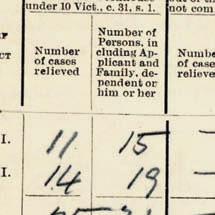 under 10 Vict., c. 31, s. 1.
not com
Number
of cases
relieved
Number of
Persons, in
cluding Ap-
plicant and
Family, de-
pendent or
him or her
Number
of cases
relieved
CT
I. 11 15
I. 14 19